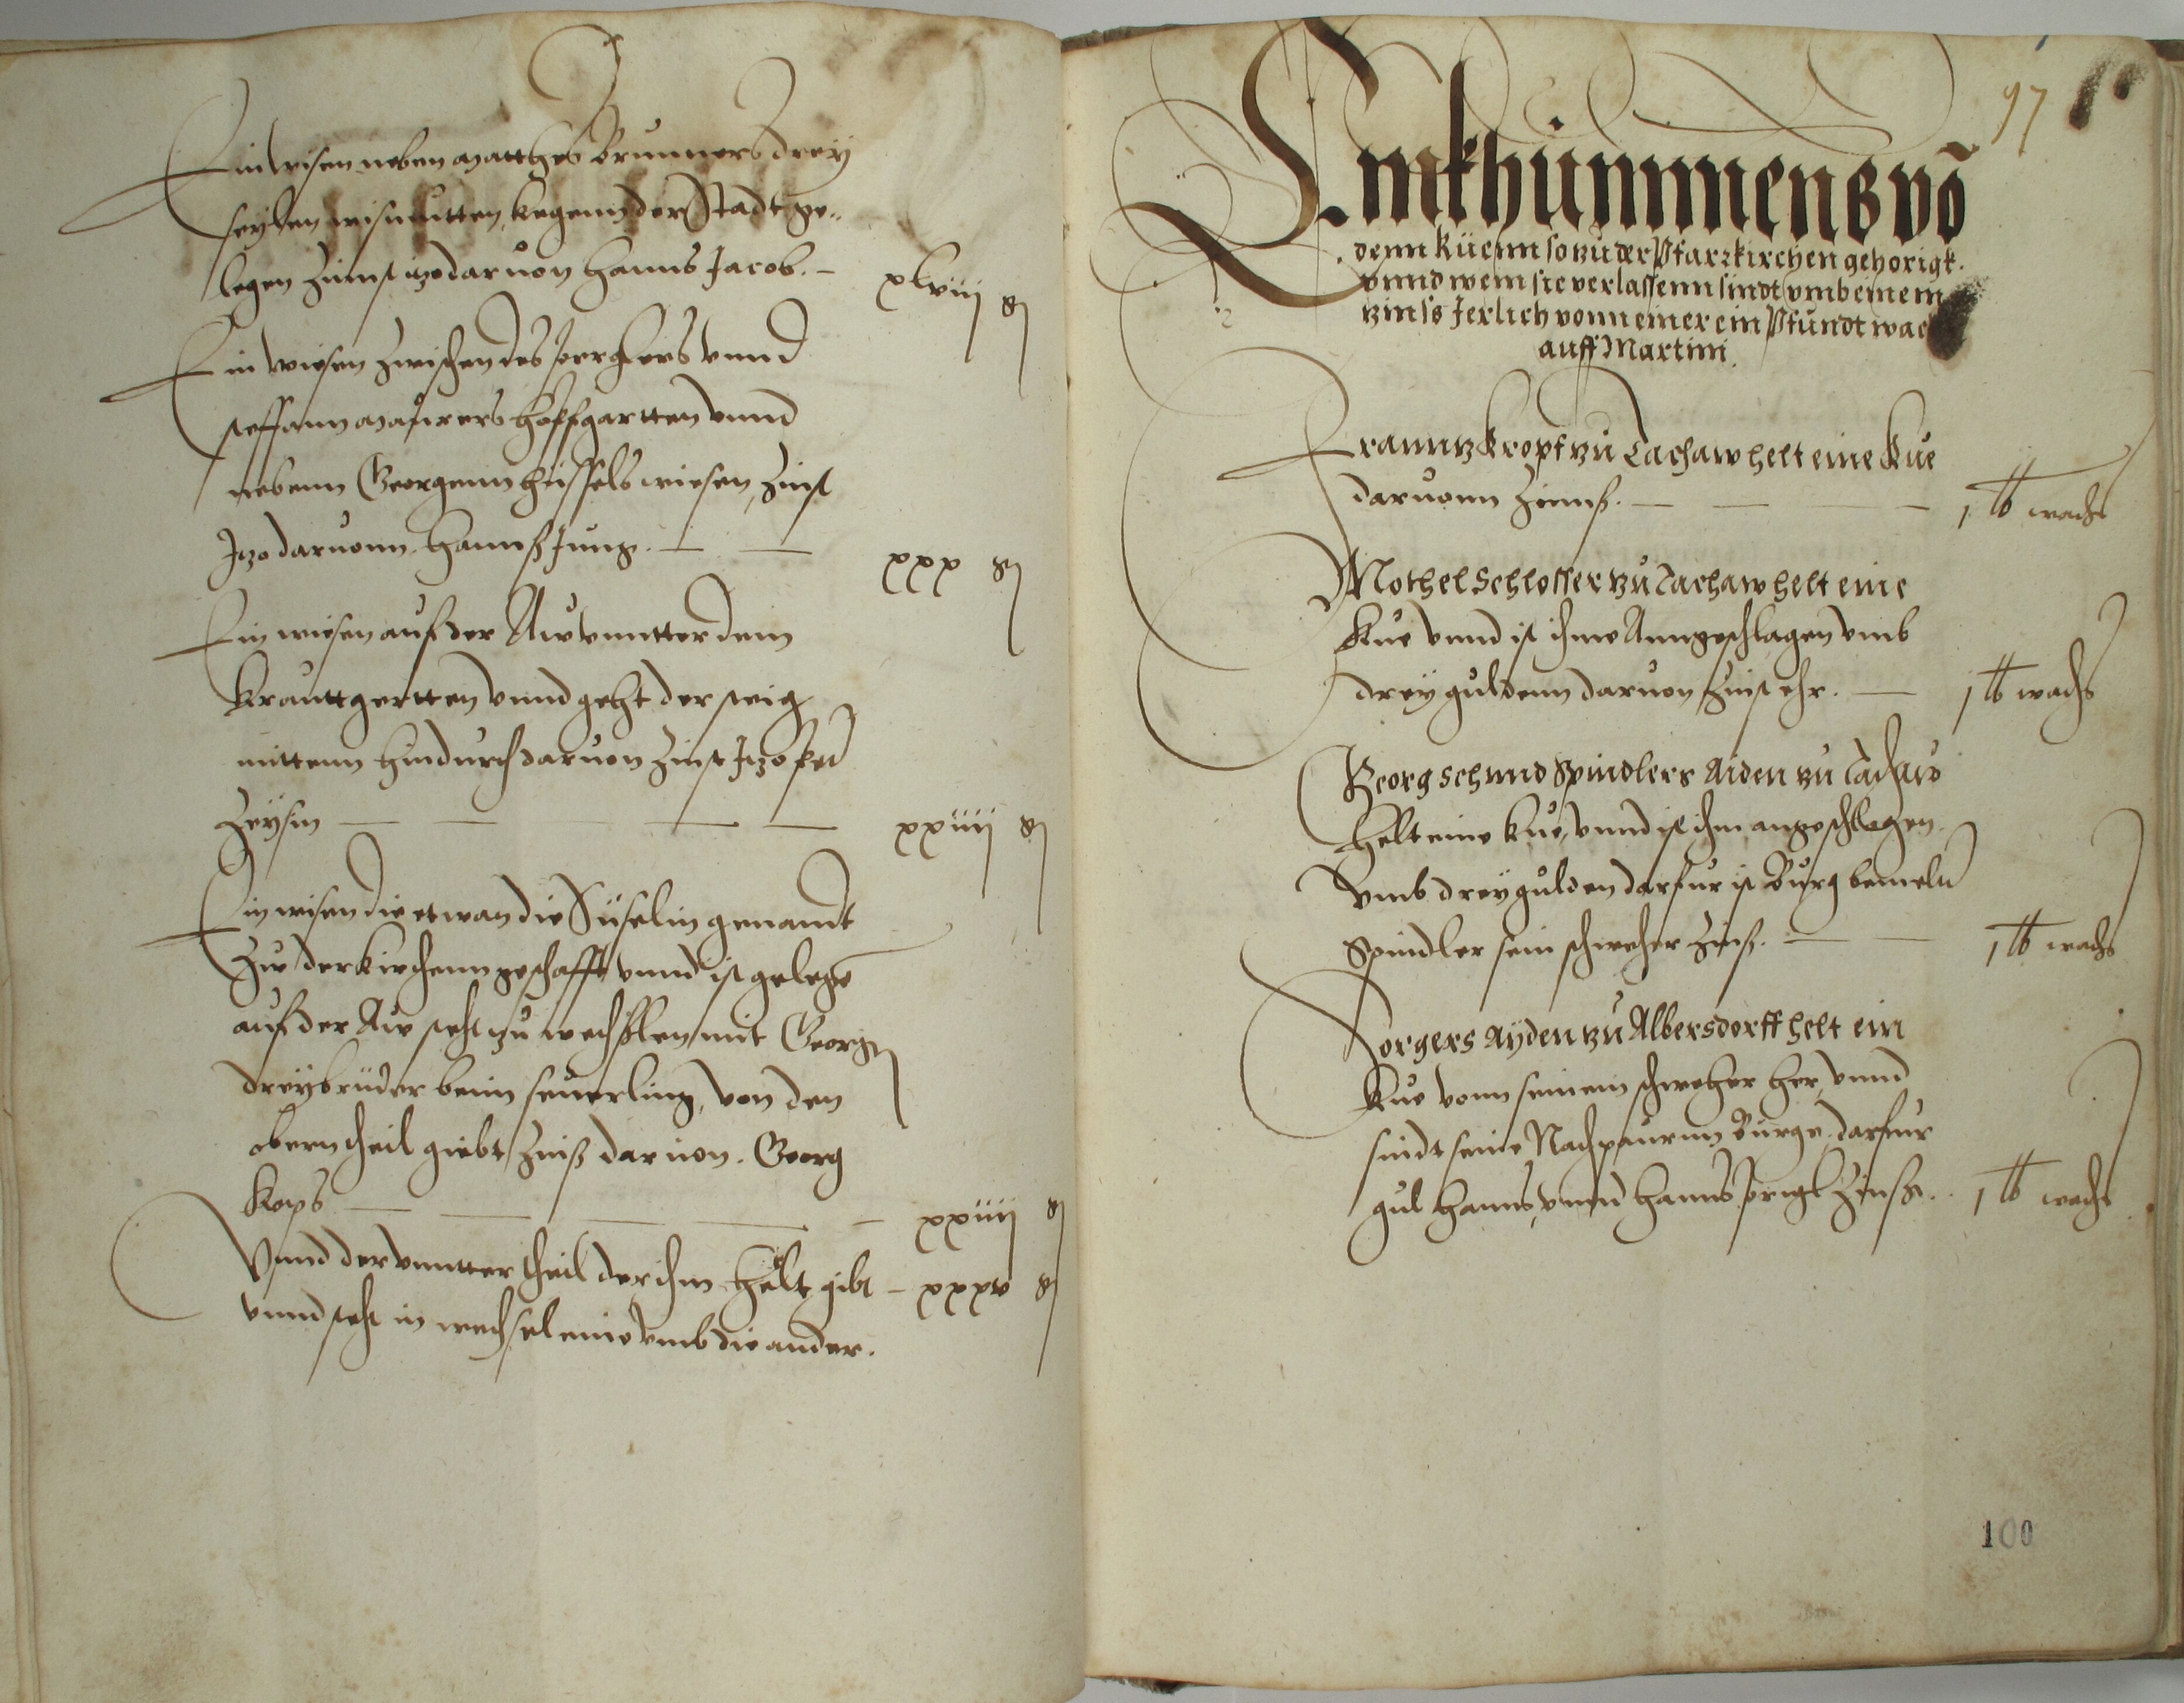 Ein wisen neben Matthes Brunners drey
seyllen wismutten, kegenn der Stadt ge-
legen Zinnst itzo daruon Hanns Jacob. — xlviij ₰
Ein wiesen zwischen des pergkers vnnd
steffann Maurers hoffgartten vnnd
nebenn Georgenn hüssels wiesen, Zinst
Itzo daruonn Hannß Jung. — — xxx ₰
Ein wiesen auf der Aw vnntter dem
krauttgertten vnnd geht der steig
mittenn hindurch daruon Zinst Itzo
Zeysin — — — — xxiiij ₰
Ein wisen die etwan die Süselin genandt
Zw der kirchenn geschafft vnnd ist gelegē
auf der Aw steht zu wechsslen mit Georgen
dreybrüder beim feuerling, von den
obern theil giebt Zinß daruon. Georg
Kops — — — — xxiiij ₰
Vnnd der vnntter theil der ihm helt gibt — xxxv ₰
vnnd steht in wechsel eine vmb die ander.
97
Einkhummens vō
denn Küenn so zu der Pfarrkirchen gehorigk.
vnnd wem sie verlassenn sindt vmb einem
zinss Jerlich vonn einer ein Pfundt wac
auff Martini.
Franntz kropf zu Tachaw helt eine Kue
daruonn Zinnß. — — — 1 ℔ wachs
Mothel Schlosser zu Tachaw helt eine
Kue vnnd ist ihme Anngeschlagen vmb
drey guldenn daruon Zinst ehr. — 1 ℔ wachs
Georg Schmid Spindlers Aiden zu Tachaw
helt eine kue, vnnd ist ihm angeschlagen
vmb drey gulden darfur ist Burg bemelter
Spindler sein schweher Zinß. — — 1 ℔ wachs
Jorgers Ayden zu Albersdorff helt ein
Kue vonn seinem schweher her, vnnd
sindt seine Nachpaurnn Burge, darfur
gul Hanns, vnnd Hanns Zinß. 1 ℔ wachs
100